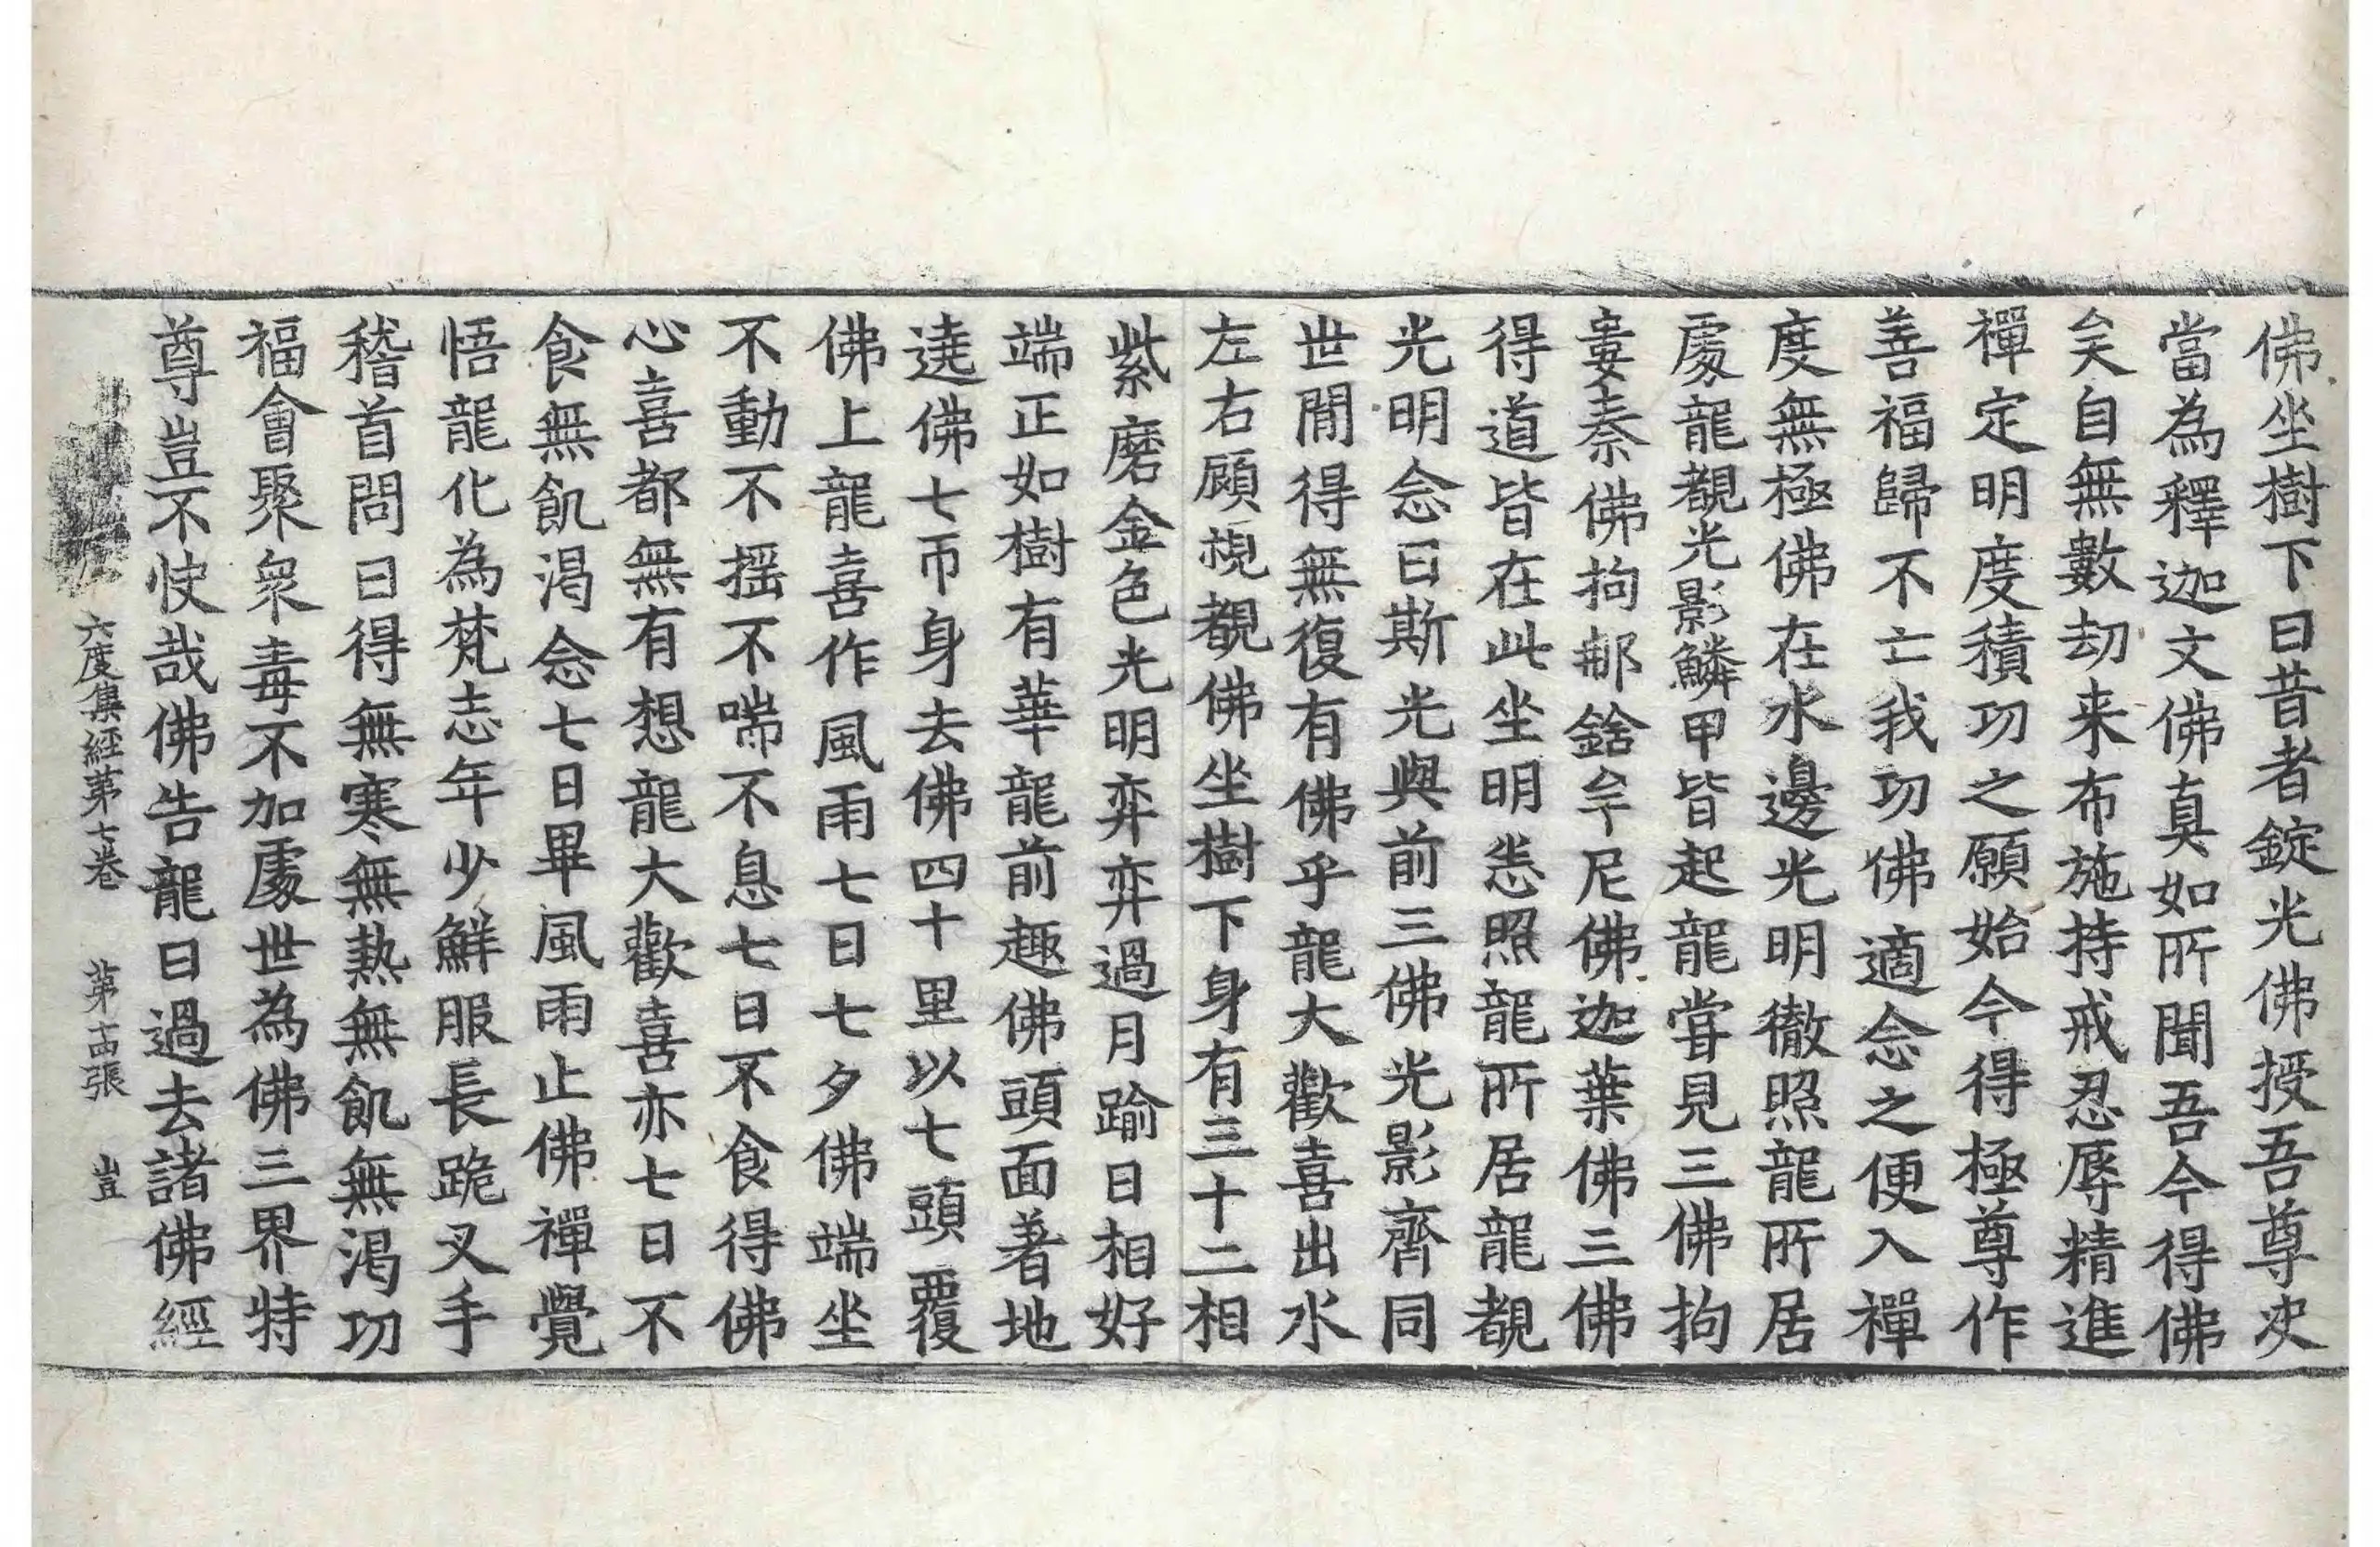 佛坐樹下曰昔者錠光佛授吾尊决
當為釋迦文佛真如所聞吾今得佛
矣自無數劫来布施持戒忍辱精進
禪定明度積功之願始今得極尊作
善福歸不亡我功佛適念之便入禪
度無極佛在水邊光明徹照龍所居
處龍覩光影鱗甲皆起龍甞見三佛拘
婁秦佛拘𨚗鋡牟尼佛迦葉佛三佛
得道皆在此坐明悉照龍所居龍覩
光明念曰斯光與前三佛光影齊同
世間得無復有佛乎龍大歡喜出水
左右顧視覩佛坐樹下身有三十二相
紫磨金色光明弈弈過月踰日相好
端正如樹有華龍前趣佛頭面著地
遶佛七帀身去佛四十里以七頭覆
佛上龍喜作風雨七日七夕佛端坐
不動不摇不喘不息七日不食得佛
心喜都無有想龍大歡喜亦七日不
食無飢渴念七日畢風雨止佛禪覺
悟龍化為梵志年少鮮服長跪叉手
稽首問曰得無寒無熱無飢無渴功
福會聚衆毒不加處世為佛三界特
尊豈不快哉佛告龍曰過去諸佛經
六度集經第七卷 第十四張 豈